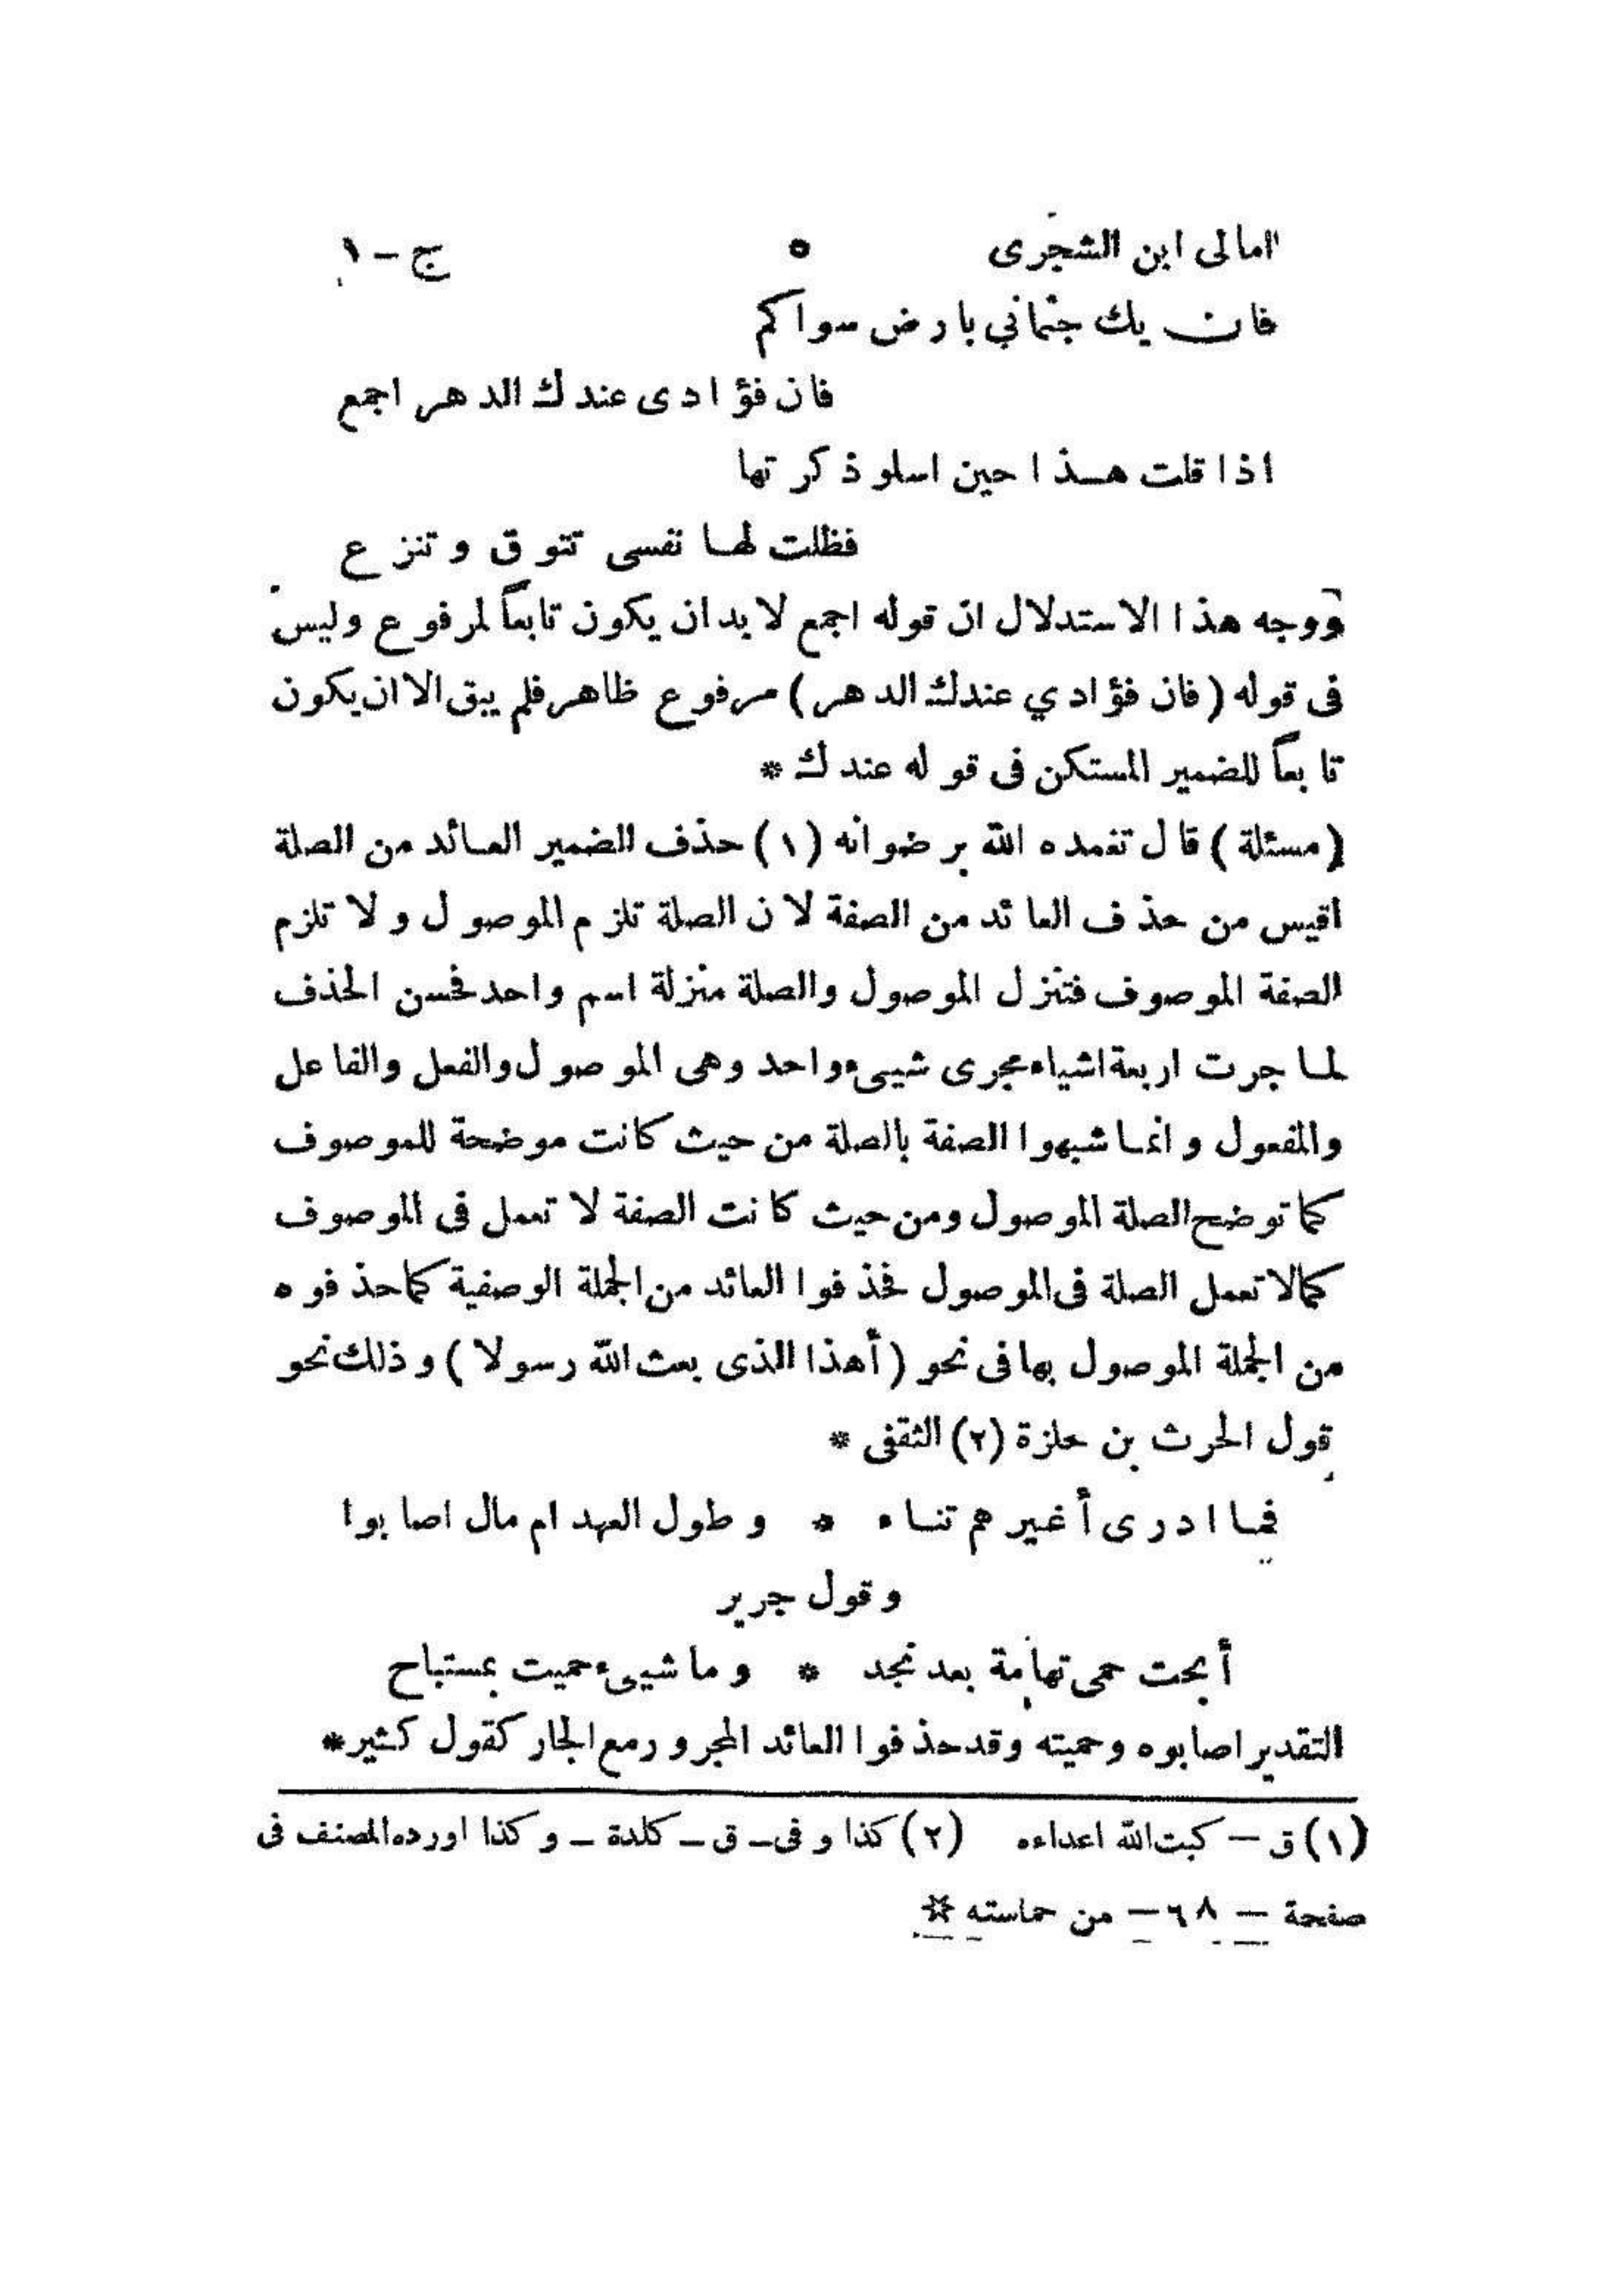 امالى ابن الشجرى ٥ ج - ١
فان يك جثماني بارض سواكم
فان فؤادى عندك الدهر اجمع
اذا قلت هذا حين اسلو ذكرتها
فظلت لها نفسى تتوق وتنزع
ووجه هذا الاستدلال ان قوله اجمع لا بد ان يكون تابعاً لمرفوع وليس
فى قوله (فان فؤادي عندك الدهر) مرفوع ظاهر فلم يبق الا ان يكون
تابعاً للضمير المستكن فى قوله عندك *
(مسئلة) قال تغمده الله برضوانه (١) حذف الضمير العائد من الصلة
اقيس من حذف العائد من الصفة لان الصلة تلزم الموصول ولا تلزم
الصفة الموصوف فتنزل الموصول والصلة منزلة اسم واحد فحسن الحذف
لما جرت اربعة اشياء مجرى شيىء واحد وهى الموصول والفعل والفاعل
والمفعول وانما شبهوا الصفة بالصلة من حيث كانت موضحة للموصوف
كما توضح الصلة الموصول ومن حيث كانت الصفة لا تعمل فى الموصوف
كمالا تعمل الصلة فى الموصول فحذفوا العائد من الجملة الوصفية كما حذفوه
من الجملة الموصول بها فى نحو (أهذا الذى بعث الله رسولا) وذلك نحو
قول الحرث بن حلزة (٢) الثقفى *
فما ادرى أغيرهم تناء * وطول العهد ام مال اصابوا
وقول جرير
أبحت حمى تهامة بعد نجد * وما شيىء حميت بمستباح
التقدير اصابوه وحميته وقد حذفوا العائد المجرور مع الجار كقول كثير *
(١) ق — كبت الله اعداءه (٢) كذا وفى - ق - كلدة - وكذا اورده المصنف فى
صفحة — ٦٨ — من حماسته *